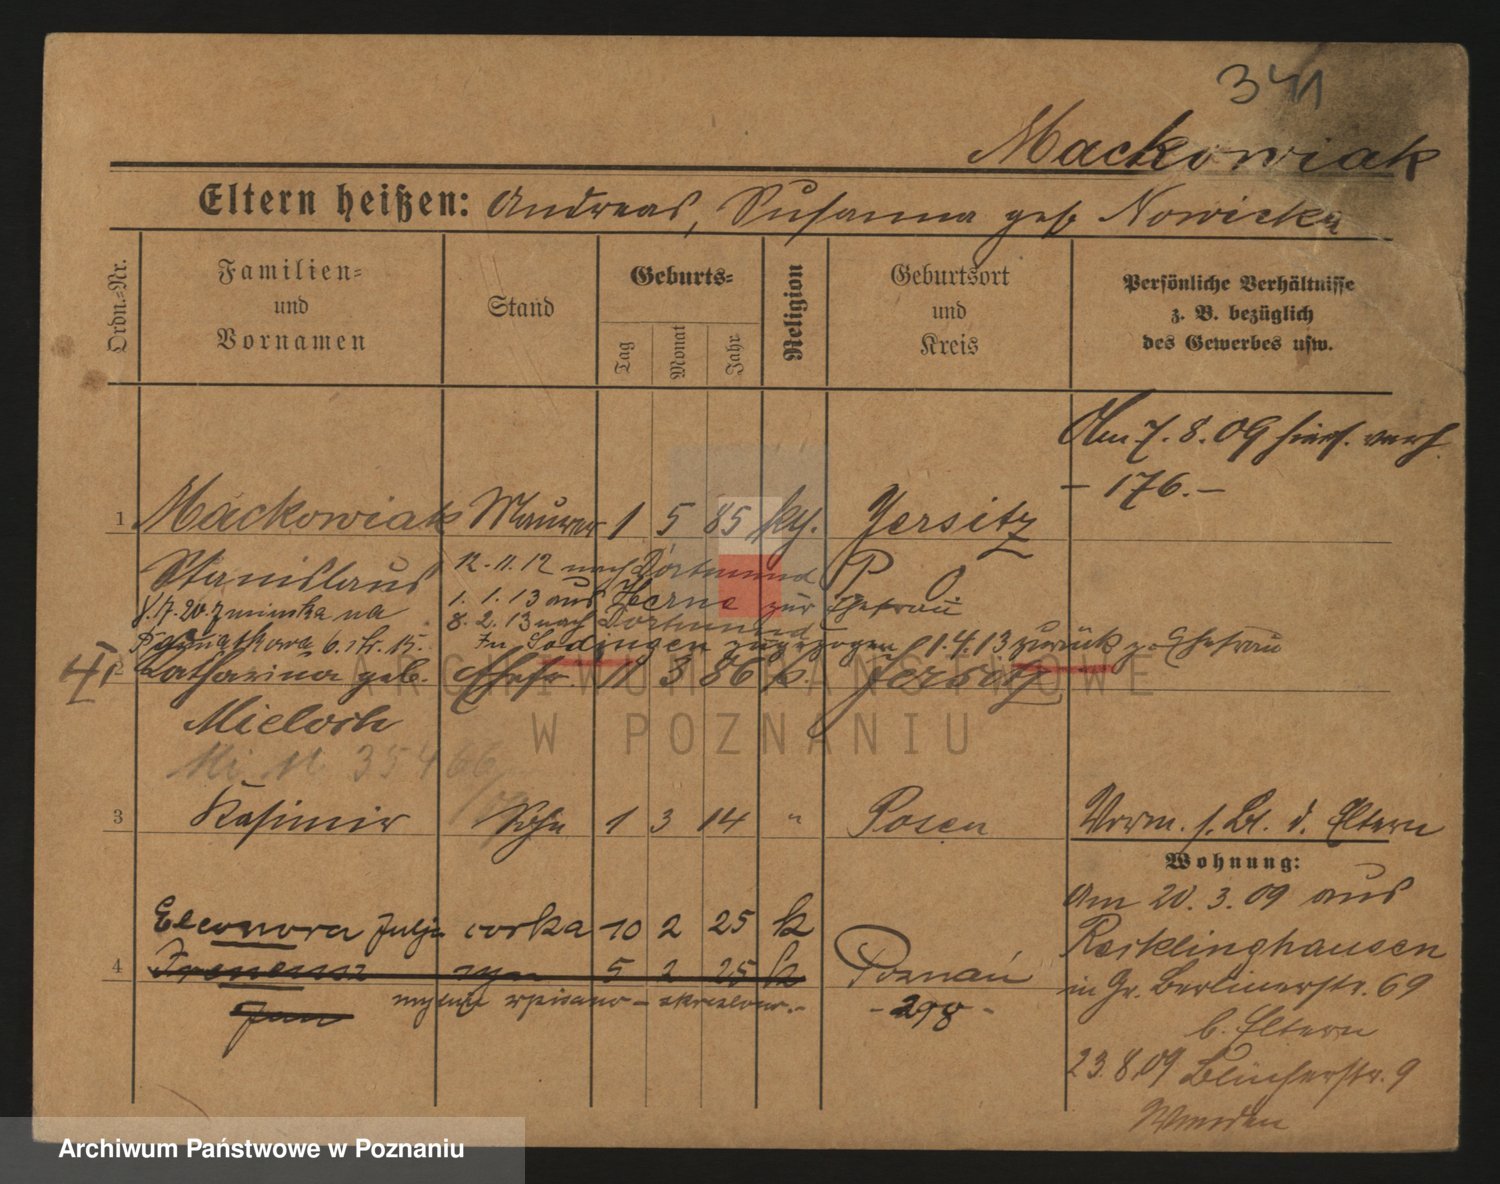 341
Mackowiak
Eltern heißen: Andreas, Susanna geb Nowicka
Ordn.=Nr.
Familien=
und
Vornamen
Stand
Geburts=
Tag
Monat
Jahr
Religion
Geburtsort
und
Kreis
Persönliche Verhältnisse
z. B. bezüglich
des Gewerbes usw.
Am 7. 8. 09 hier verh.
- 176. -
1 Mackowiak Maurer 1 5 85 ky. Jersitz
Stanislaus 12. 11. 12 nach Dortmund P O
1. 1. 13 aus Herne zur Ehefrau
8. 7. 20 zmiunka na 8. 2. 13 nach Dortmund
6. str. 15. In Sodingen zugezogen 1. 4. 13 zurück z. Ehefrau
2 Katharina geb. Ehefr. 11 3 86 k. Jersitz
Mieloch
35466
3 Kasimir Sohn 1 3 14 " Posen
Vorm. s. Bl. d. Eltern
Wohnung:
Am 20. 3. 09 aus
Recklinghausen
in Gr. Berlinerstr. 69
b. Eltern
23. 8. 09 Blücherstr. 9
Eleonora Julja corka 10 2 25 k
4 Ireneusz syn 5 2 25 k Poznań
Jan mylnie wpisano - skreslono. -
- 298 -
ARCHIWUM PAŃSTWOWE
W POZNANIU
Archiwum Państwowe w Poznaniu